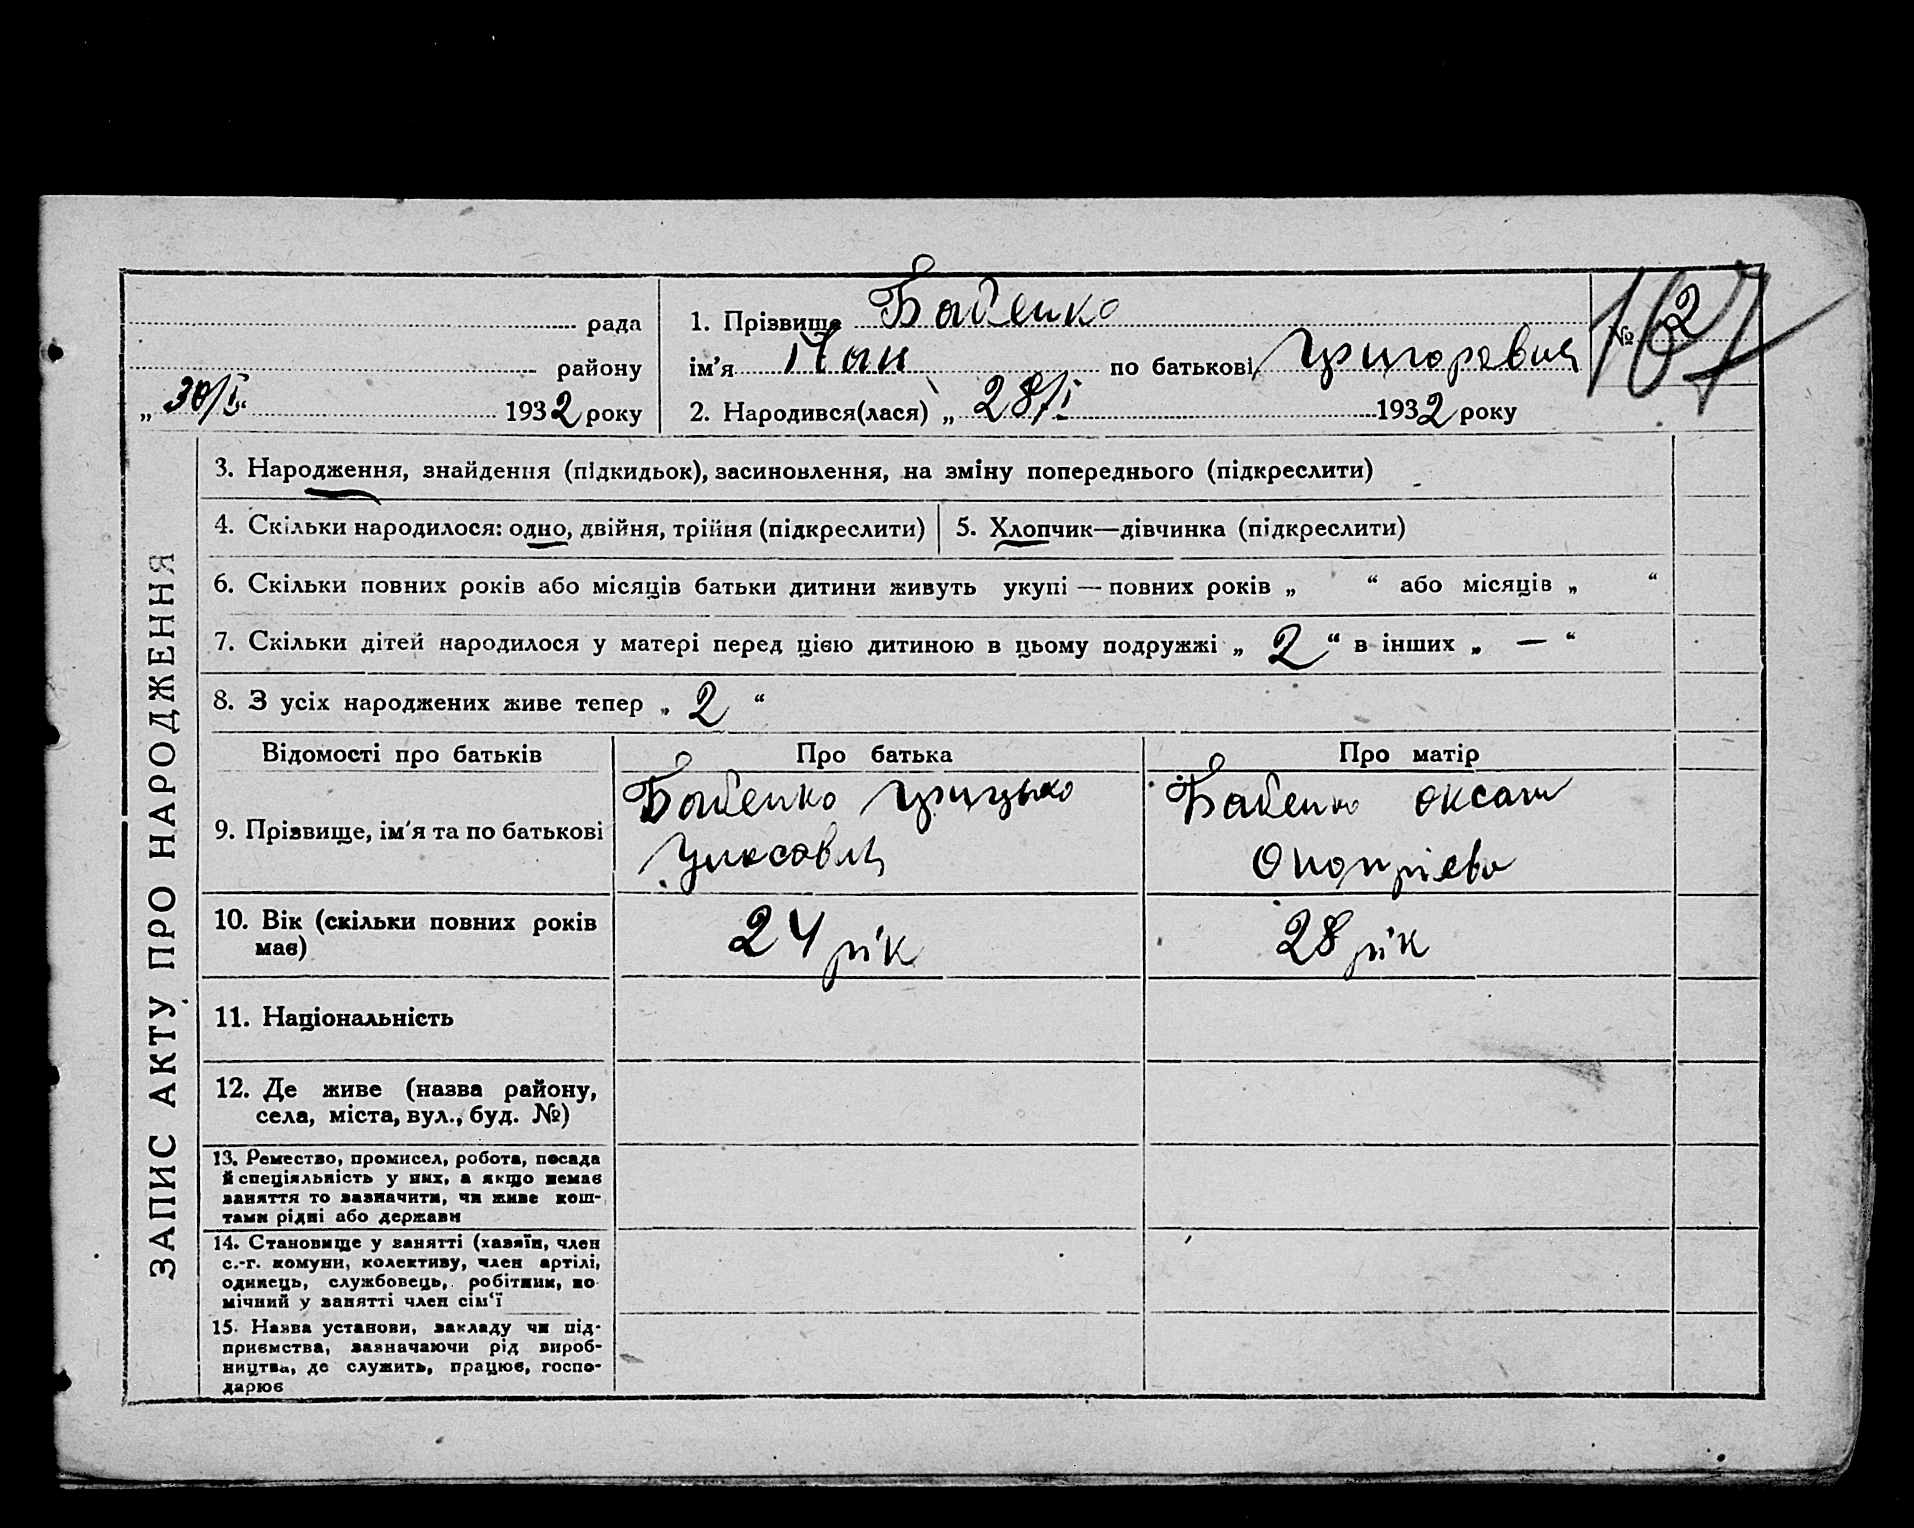 рада
району
„ 30/I “ 1932 року
1. Прізвище Бабенко
ім'я Иан по батькові Григорович
2. Народився(лася) „ 28/I 1932 року
№ 2
167
ЗАПИС АКТУ ПРО НАРОДЖЕННЯ
3. Народження, знайдення (підкидьок), засиновлення, на зміну попереднього (підкреслити)
4. Скільки народилося: одно, двійня, трійня (підкреслити)
5. Хлопчик—дівчинка (підкреслити)
6. Скільки повних років або місяців батьки дитини живуть укупі — повних років „ “ або місяців „ “
7. Скільки дітей народилося у матері перед цією дитиною в цьому подружжі „ 2 “ в інших „ — “
8. З усіх народжених живе тепер „ 2 “
Відомості про батьків Про батька Про матір
9. Прізвище, ім'я та по батькові
Бабенко Грицько
Бабенко Оксана
Оноприєва
10. Вік (скільки повних років
має)
24 рік
28 рік
11. Національність
12. Де живе (назва району,
села, міста, вул., буд. №)
13. Ремество, промисел, робота, посада
й спеціяльність у них, а якщо немає
заняття то зазначити, чи живе кош-
тами рідні або держави
14. Становище у занятті (хазяїн, член
с.-г. комуни, колективу, член артілі,
одинець, службовець, робітник, по-
мічний у занятті член сім'ї
15. Назва установи, закладу чи під-
приємства, зазначаючи рід вироб-
ництва, де служить, працює, госпо-
дарює